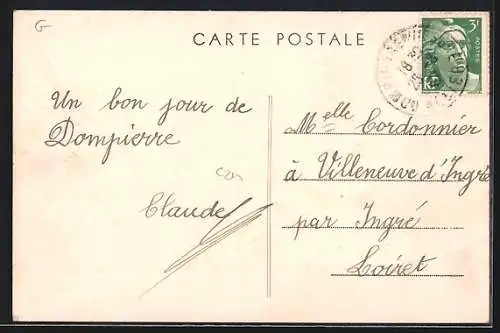 G
CARTE POSTALE
3F
Un bon jour de
Dompierre
Claude
Melle Cordonnier
à Villeneuve d'Ingré
par Ingré
Loiret